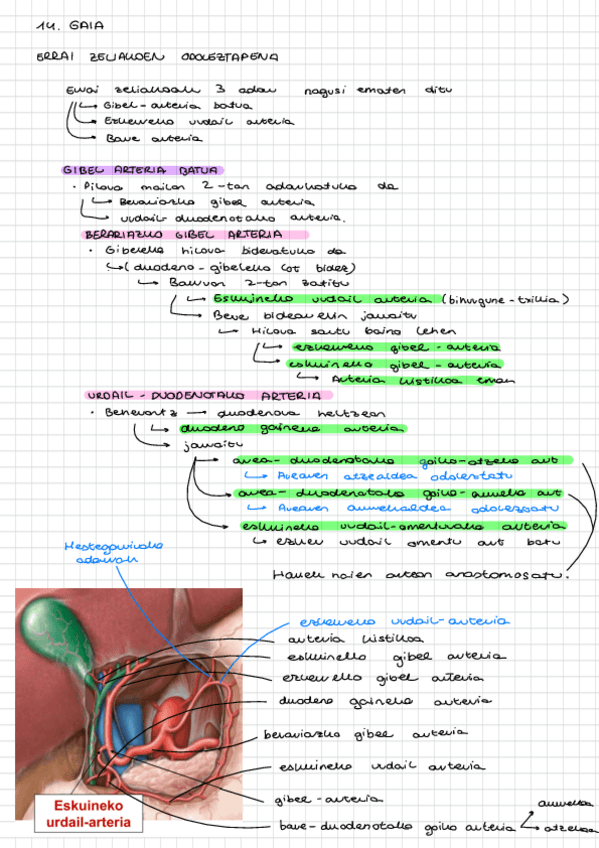 14. GAIA
ERRAI ZELIAKOEN ODOLEZTAPENA
Errai zeliakoak 3 adar nagusi ematen ditu
↳ Gibel-arteria batua
↳ Ezkerreko urdail arteria
↳ Bare arteria
GIBEL ARTERIA BATUA
· Piloro mailan 2-tan adarkatuko da
↳ Berariazko gibel arteria
↳ urdail-duodenotako arteria.
BERARIAZKO GIBEL ARTERIA
· Gibeleko hilora bideratuko da
↳ (duodeno-gibeleko lot bidez)
↳ Barruan 2-tan zatitu
↳ Eskuineko urdail arteria (bihurgune-txikia)
↳ Bere bidearekin jarraitu
↳ Hilora sartu baino lehen
↳ ezkerreko gibel-arteria
↳ eskuineko gibel-arteria
↳ Arteria kistikoa eman
URDAIL-DUODENOTAKO ARTERIA
· Beherantz → duodenora heltzean
↳ duodeno gaineko arteria
↳ jarraitu
↳ area-duodenotako goiko-atzeko art
↳ Arearen atzealdea odoleztatu
↳ area-duodenotako goiko-aurreko art
↳ Arearen aurrekaldea odoleztatu
↳ eskuineko urdail-omentuko arteria
↳ ezker urdail omentu art batu
Hauek haien artean anastomosatu.
Hestegorriko adarrak
ezkerreko urdail-arteria
arteria kistikoa
eskuineko gibel arteria
ezkerreko gibel arteria
duodeno gaineko arteria
berariazko gibel arteria
eskuineko urdail arteria
gibel-arteria
bare-duodenotako goiko arteria
aurrekoa
atzekoa
Eskuineko
urdail-arteria